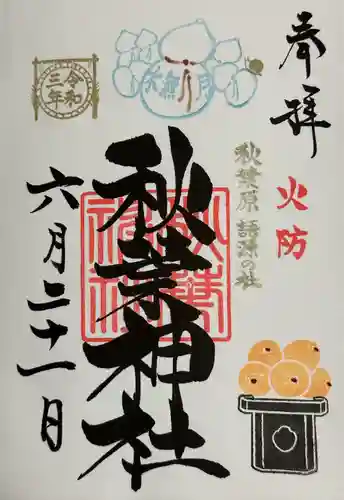 奉拝
火防
秋葉原 語源の社
水無月
令和
三年
秋葉神社
六月二十一日